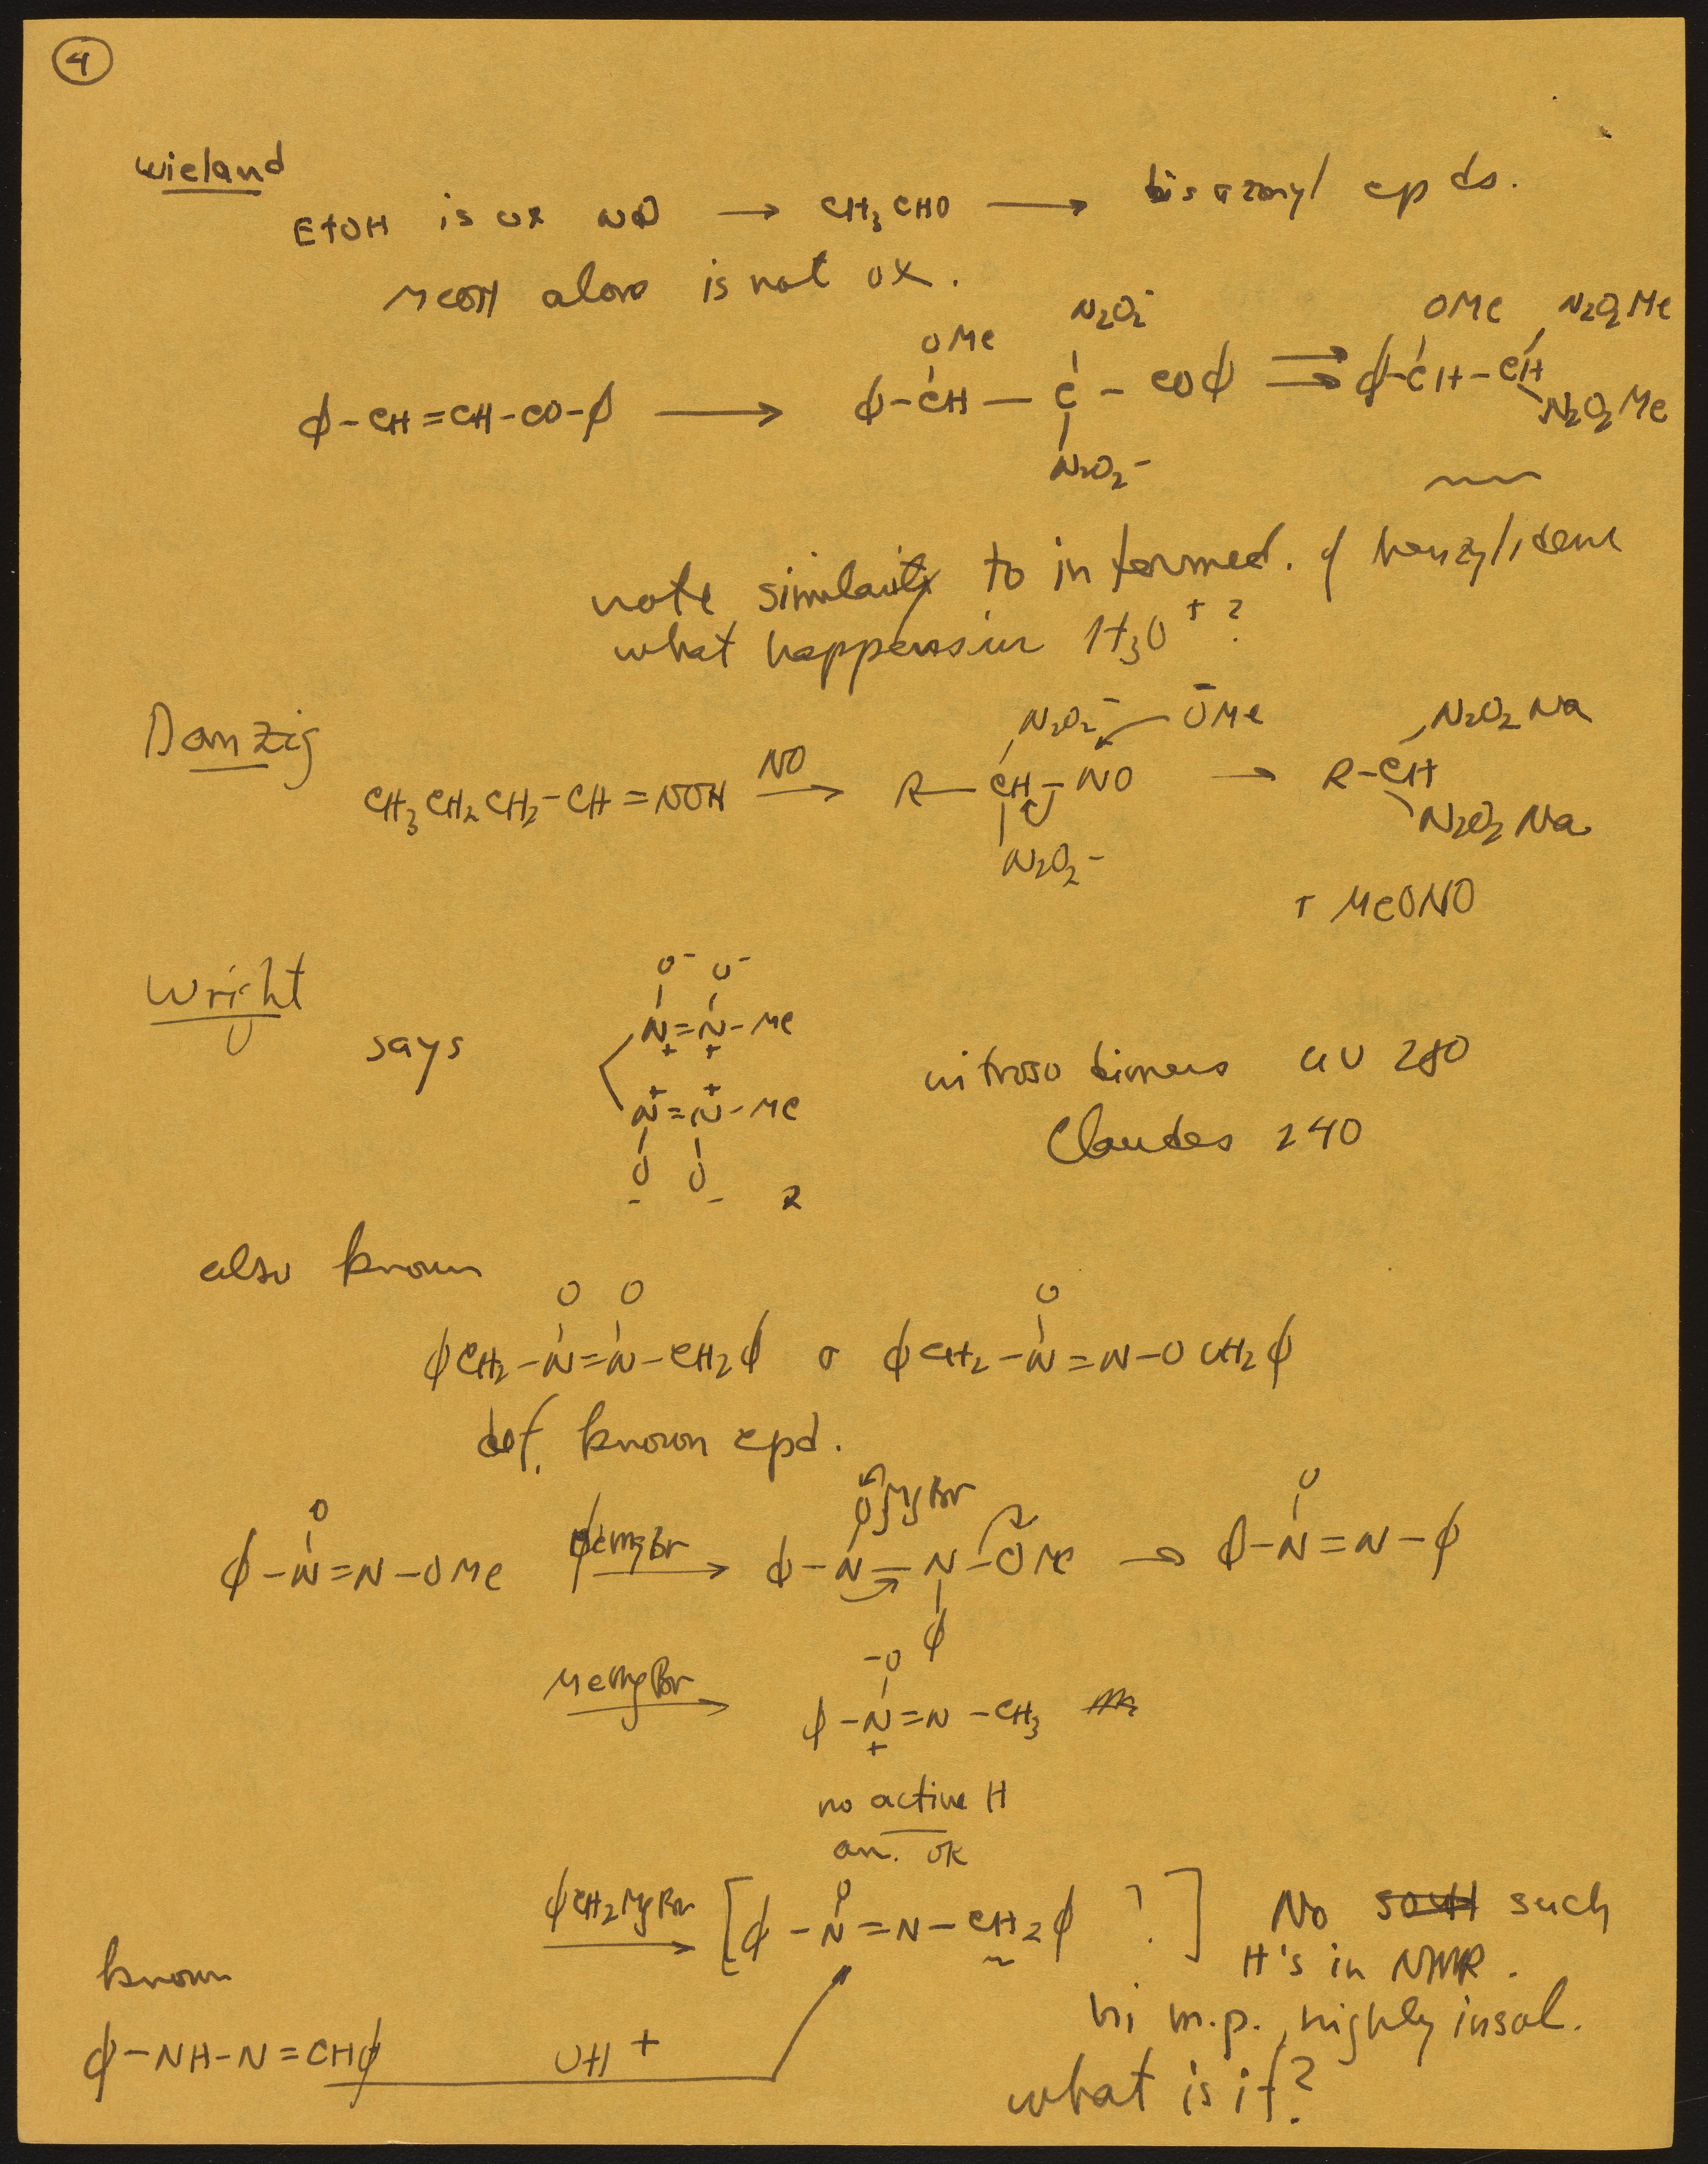 4
Wieland
EtOH is ox NO → CH3CHO → bisazoxyl cpds.
MeOH alone is not ox.
ϕ-CH=CH-CO-ϕ → ϕ-CH(OMe)-C(N2O2-)(N2O2-)-COϕ ⇒ ϕ-CH(OMe)-CH(N2O2Me)(N2O2Me)
note similarity to intermed. of benzylidene
what happens in H3O+ ?
Danzig
CH3CH2CH2-CH=NOH NO → R-CH(N2O2-)(N2O2-)-NO ŌMe → R-CH(N2O2Na)(N2O2Na)
+ MeONO
Wright
says
O- O-
N=N-Me
+ +
+ +
N=N-Me
O O
- - 2
nitroso dimers UV 280
Claudes 240
also known
O O O
ϕCH2-N=N-CH2ϕ or ϕCH2-N=N-OCH2ϕ
def. known cpd.
O OMgBr O
ϕ-N=N-OMe ϕMgBr → ϕ-N-N-OMe → ϕ-N=N-ϕ
ϕ
-O
MeMgBr → ϕ-N=N-CH3
+
no active H
an. ok
O
ϕCH2MgBr → [ϕ-N=N-CH2ϕ ?] No such
H's in NMR.
hi m.p., highly insol.
what is it?
known
ϕ-NH-N=CHϕ OH+